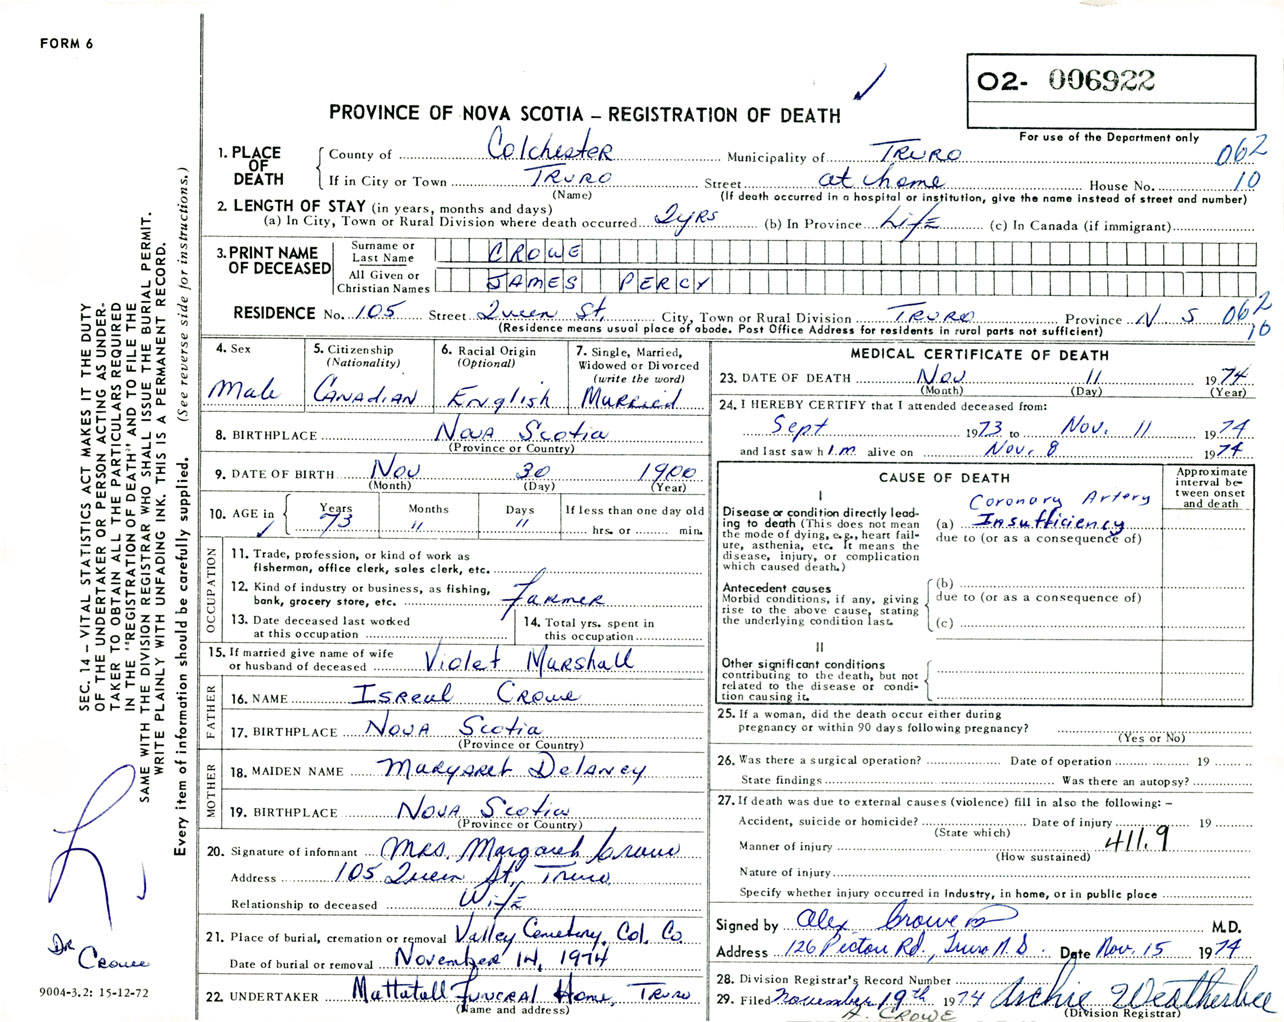 FORM 6
O2- 006922
PROVINCE OF NOVA SCOTIA – REGISTRATION OF DEATH
For use of the Department only
1. PLACE OF DEATH
County of Colchester Municipality of TRURO 062
If in City or Town TRURO Street at home House No. 10
(Name) (If death occurred in a hospital or institution, give the name instead of street and number)
2. LENGTH OF STAY (in years, months and days)
(a) In City, Town or Rural Division where death occurred 2 yrs (b) In Province Life (c) In Canada (if immigrant)
3. PRINT NAME OF DECEASED
Surname or Last Name CROWE
All Given or Christian Names JAMES PERCY
RESIDENCE No. 105 Street Queen St. City, Town or Rural Division TRURO Province N S 062
(Residence means usual place of abode. Post Office Address for residents in rural parts not sufficient) 10
4. Sex
Male
5. Citizenship
(Nationality)
Canadian
6. Racial Origin
(Optional)
English
7. Single, Married,
Widowed or Divorced
(write the word)
Married
8. BIRTHPLACE Nova Scotia
(Province or Country)
9. DATE OF BIRTH Nov 30 1900
(Month) (Day) (Year)
10. AGE in
Years Months Days If less than one day old
73 " " hrs. or min.
OCCUPATION
11. Trade, profession, or kind of work as
fisherman, office clerk, sales clerk, etc.
12. Kind of industry or business, as fishing,
bank, grocery store, etc. Farmer
13. Date deceased last worked
at this occupation
14. Total yrs. spent in
this occupation
15. If married give name of wife
or husband of deceased Violet Marshall
FATHER
16. NAME Isreal Crowe
17. BIRTHPLACE Nova Scotia
(Province or Country)
MOTHER
18. MAIDEN NAME Margaret Delaney
19. BIRTHPLACE Nova Scotia
(Province or Country)
20. Signature of informant Mrs. Margaret Crowe
Address 105 Queen St, Truro
Relationship to deceased Wife
21. Place of burial, cremation or removal Valley Cemetery, Col. Co.
Date of burial or removal November 14, 1974
22. UNDERTAKER Mattatall Funeral Home, Truro
(Name and address)
MEDICAL CERTIFICATE OF DEATH
23. DATE OF DEATH Nov 11 1974
(Month) (Day) (Year)
24. I HEREBY CERTIFY that I attended deceased from:
Sept 1973 to Nov. 11 1974
and last saw h i.m. alive on Nov. 8 1974
CAUSE OF DEATH
Approximate interval between onset and death
I
Disease or condition directly leading to death (This does not mean
the mode of dying, e.g., heart failure, asthenia, etc. It means the
disease, injury, or complication
which caused death.)
Coronary Artery
(a) Insufficiency
due to (or as a consequence of)
Antecedent causes
Morbid conditions, if any, giving
rise to the above cause, stating
the underlying condition last.
(b)
due to (or as a consequence of)
(c)
II
Other significant conditions
contributing to the death, but not
related to the disease or condition causing it.
25. If a woman, did the death occur either during
pregnancy or within 90 days following pregnancy?
(Yes or No)
26. Was there a surgical operation? Date of operation 19
State findings Was there an autopsy?
27. If death was due to external causes (violence) fill in also the following: –
Accident, suicide or homicide? Date of injury 19
(State which)
Manner of injury 411.9
(How sustained)
Nature of injury
Specify whether injury occurred in industry, in home, or in public place
Signed by Alex Crowe M.D.
Address 126 Pictou Rd., Truro N.S. Date Nov. 15 1974
28. Division Registrar's Record Number
29. Filed November 19th 1974 Archie Weatherbee
(Division Registrar)
A. CROWE
SEC. 14 – VITAL STATISTICS ACT MAKES IT THE DUTY
OF THE UNDERTAKER OR PERSON ACTING AS UNDER-
TAKER TO OBTAIN ALL THE PARTICULARS REQUIRED
IN THE "REGISTRATION OF DEATH" AND TO FILE THE
SAME WITH THE DIVISION REGISTRAR WHO SHALL ISSUE THE BURIAL PERMIT.
WRITE PLAINLY WITH UNFADING INK. THIS IS A PERMANENT RECORD.
Every item of information should be carefully supplied. (See reverse side for instructions.)
Dr Crowe
9004-3.2: 15-12-72